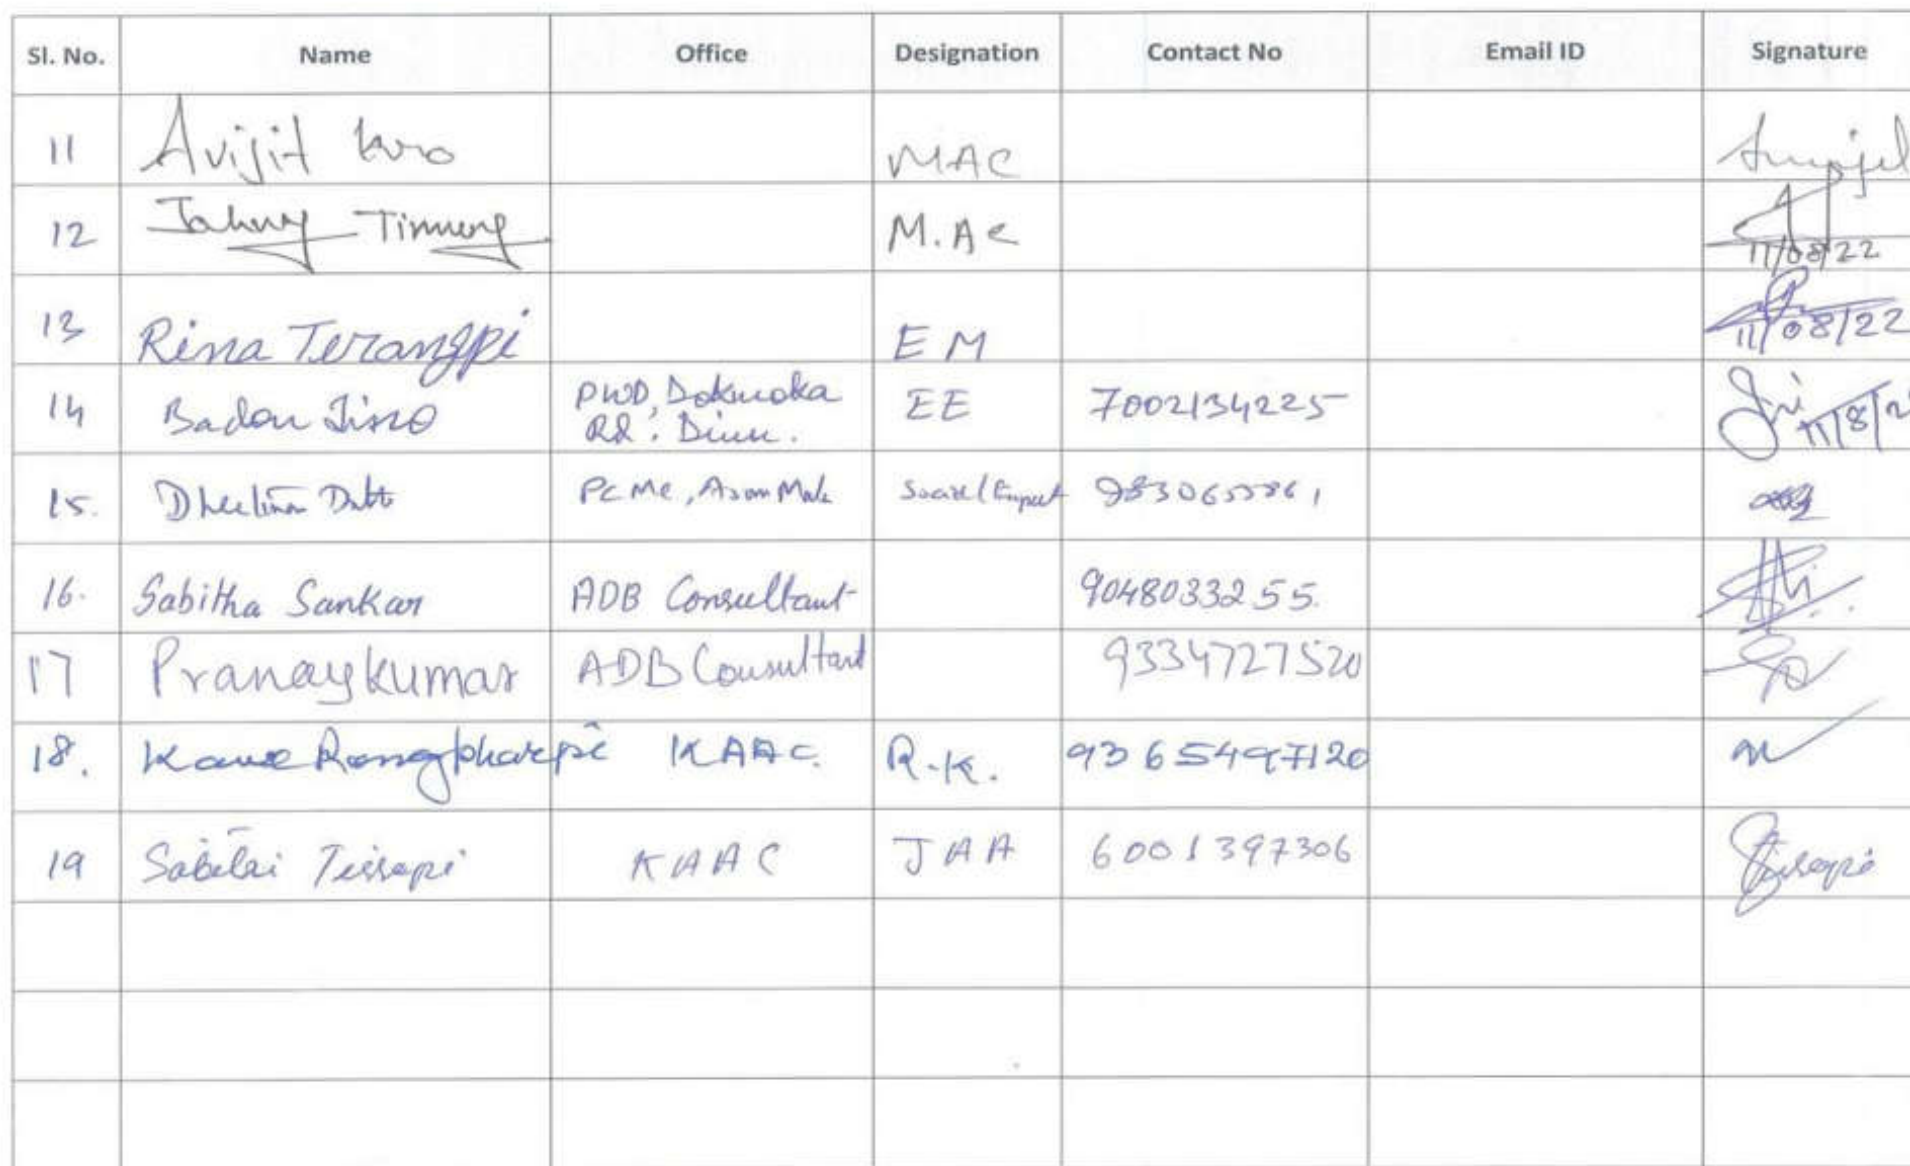 Sl. No. Name Office Designation Contact No Email ID Signature
11 Avijit Kro MAC
12 Johny Timung M.AC 11/08/22
13 Rina Terangpi EM 11/08/22
14 Badon Tisso PWD, Dokmoka EE 7002134225 11/8/2
RR. Divn.
15. Dutta PCMC, Asom Mala Social Expert
16. Sabitha Sankar ADB Consultant 9048033255.
17 Pranaykumar ADB Consultant 9334727520
18. Rongpharpi KAAC. R.K. 9365497120
19 Tissopi KAAC JAA 6001397306